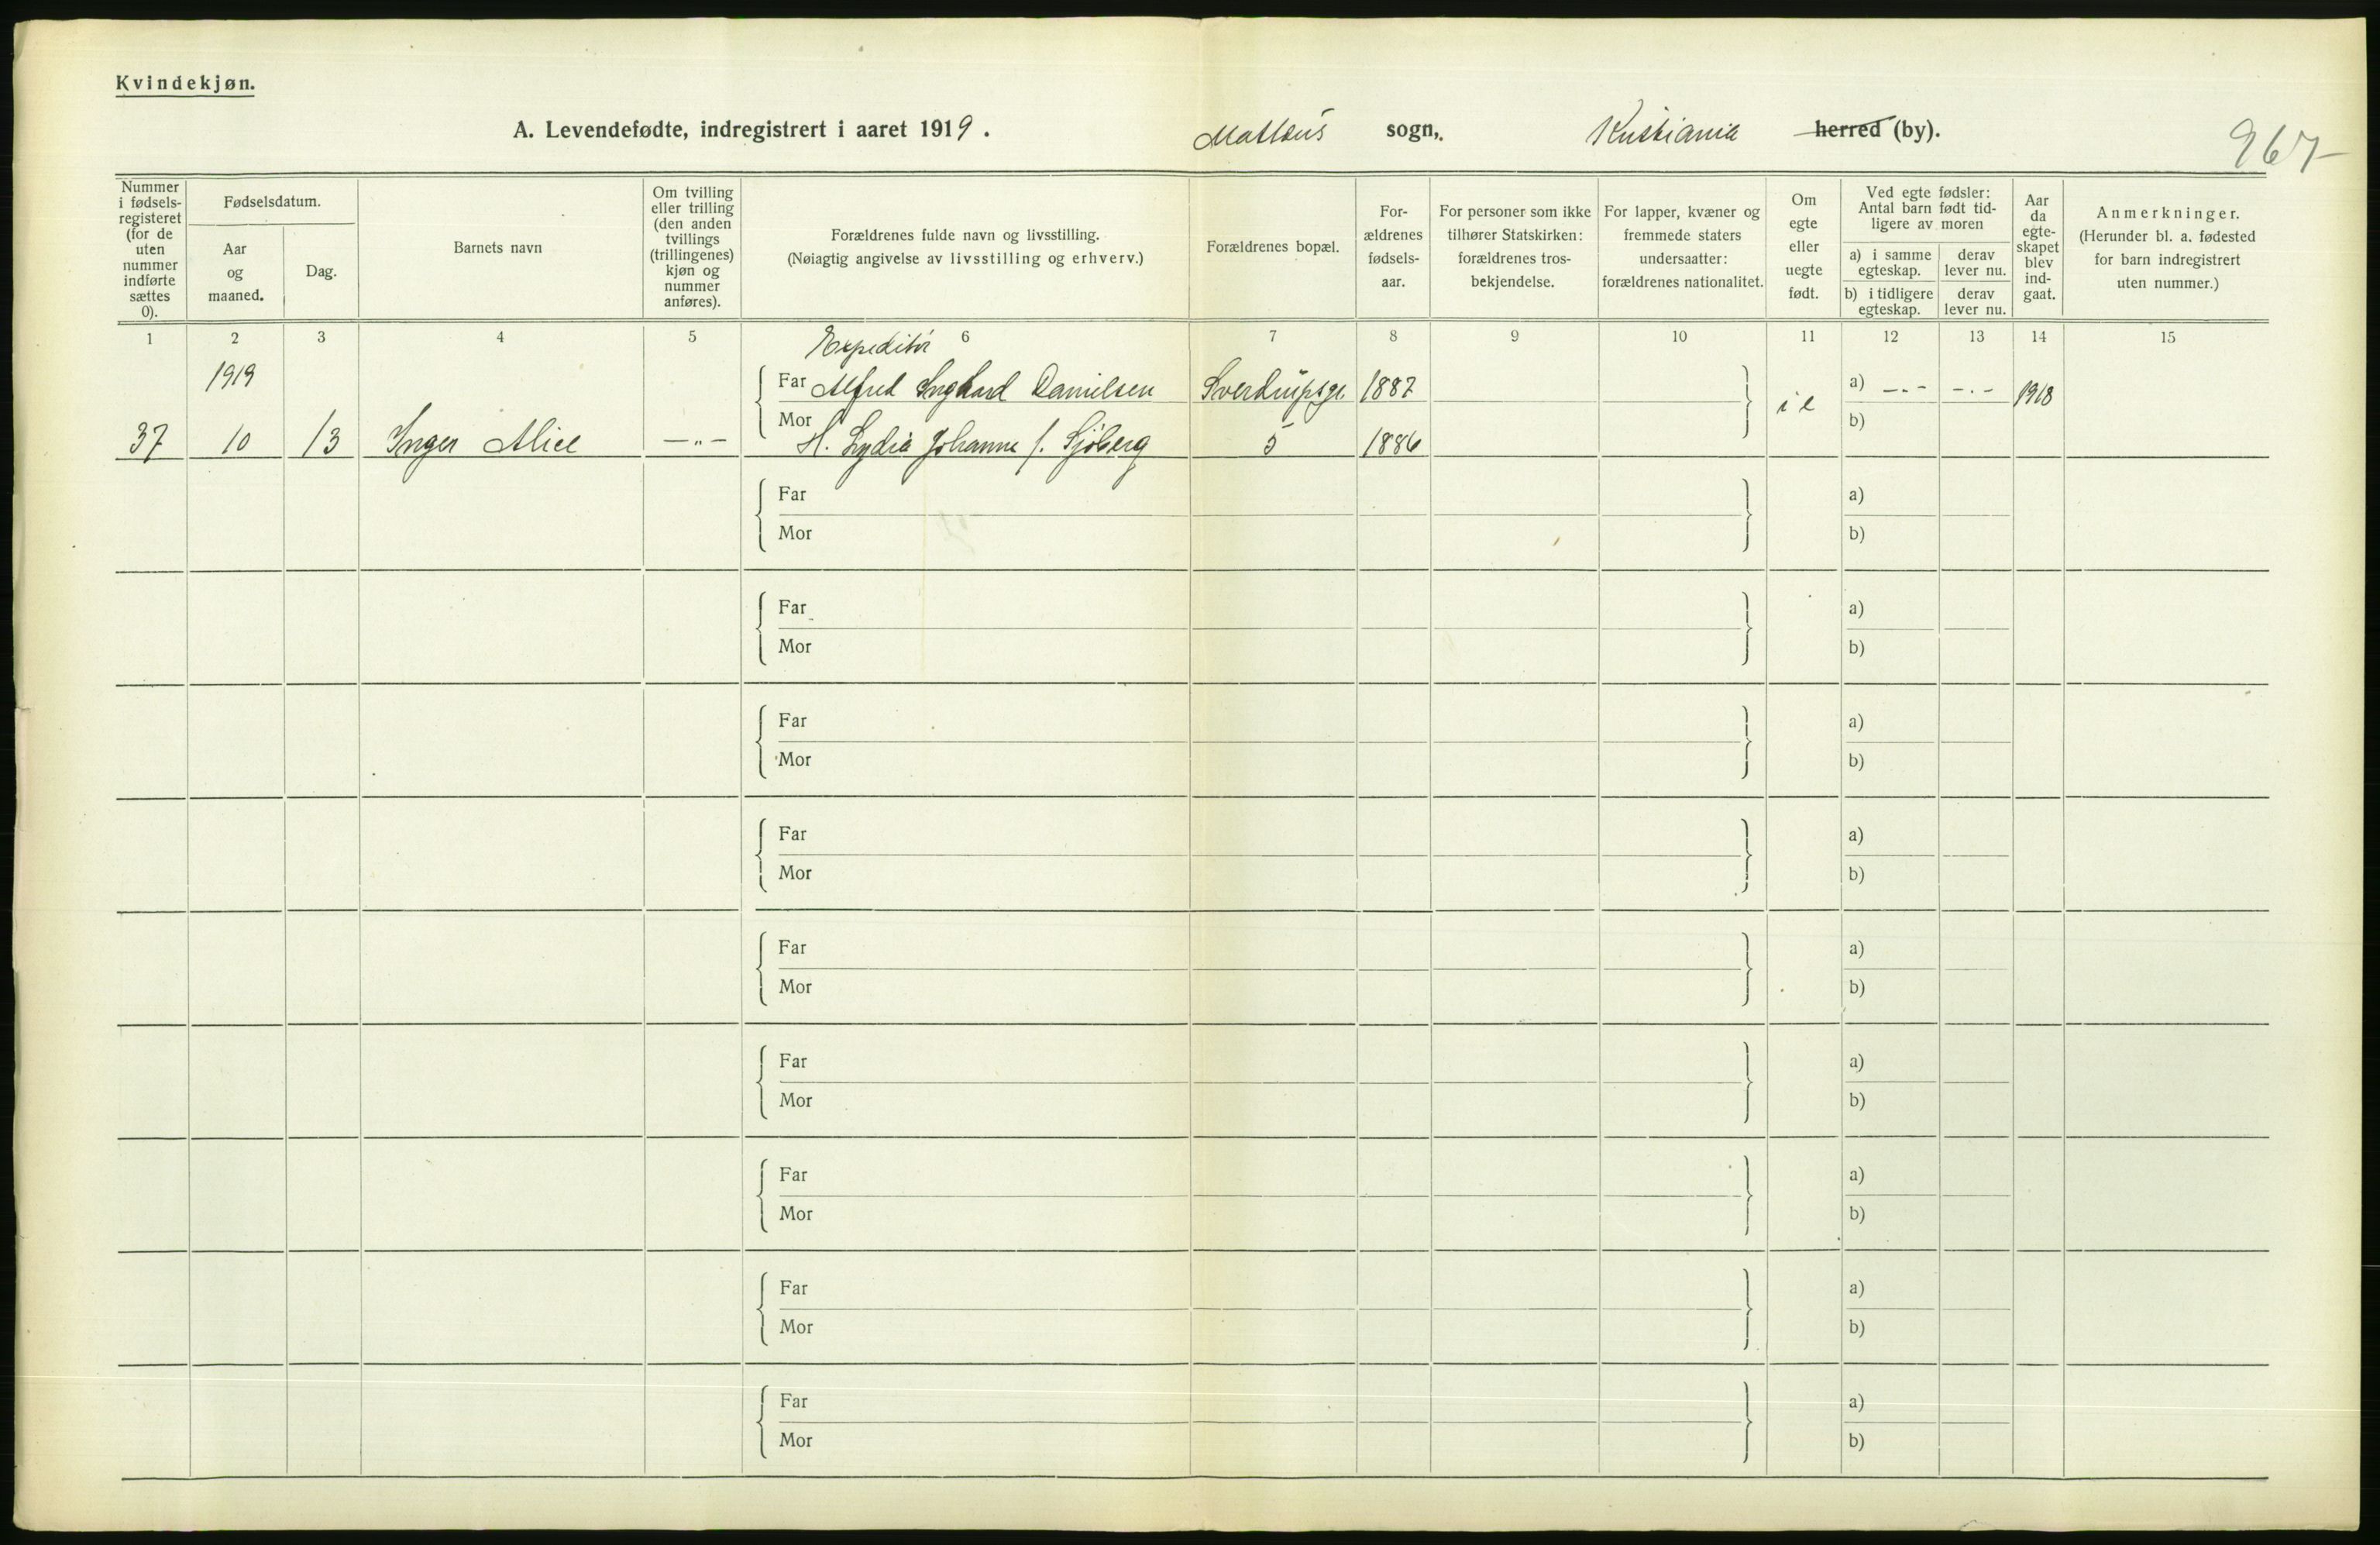 Kvindekjøn.
A. Levendefødte, indregistrert i aaret 1919. Mattæus sogn, Kristiania herred (by).
967
Nummer i fødsels-registeret (for de uten nummer indførte sættes 0).
Fødselsdatum.
Aar og maaned.
Dag.
Barnets navn
Om tvilling eller trilling (den anden tvillings (trillingenes) kjøn og nummer anføres).
Forældrenes fulde navn og livsstilling.
(Nøiagtig angivelse av livsstilling og erhverv.)
Forældrenes bopæl.
For-ældrenes fødsels-aar.
For personer som ikke tilhører Statskirken: forældrenes tros-bekjendelse.
For lapper, kvæner og fremmede staters undersaatter: forældrenes nationalitet.
Om egte eller uegte født.
Ved egte fødsler: Antal barn født tid-ligere av moren
a) i samme egteskap.
derav lever nu.
b) i tidligere egteskap.
derav lever nu.
Aar da egte-skapet blev ind-gaat.
Anmerkninger.
(Herunder bl. a. fødested for barn indregistrert uten nummer.)
1 2 3 4 5 6 7 8 9 10 11 12 13 14 15
Expeditør
1919 Far Alfred Danielsen Sverdrupsgt. 1887 i e a) -"- -"- 1918
37 10 13 Inger Alice -"- Mor H. Lydia Johanne f. Sjøberg 5 1886 b)
Far a)
Mor b)
Far a)
Mor b)
Far a)
Mor b)
Far a)
Mor b)
Far a)
Mor b)
Far a)
Mor b)
Far a)
Mor b)
Far a)
Mor b)
Far a)
Mor b)